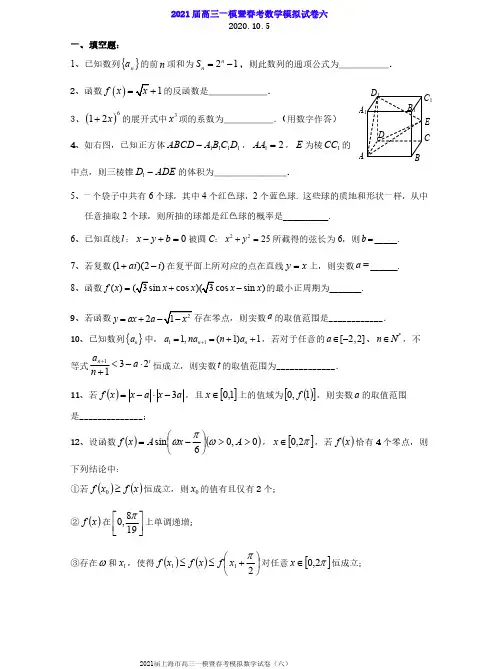 2021届高三一模暨春考数学模拟试卷六
2020.10.5
一、填空题：
1、已知数列{a_n}的前n项和为S_n=2^n-1，则此数列的通项公式为___________．
2、函数f(x)=√x+1的反函数是_____________．
3、(1+2x)^6的展开式中x^3项的系数为___________．（用数字作答）
4、如右图，已知正方体ABCD-A_1B_1C_1D_1，AA_1=2，E为棱CC_1的
中点，则三棱锥D_1-ADE的体积为________________．
D_1
C_1
A_1
B_1
E
D
C
A
B
5、一个袋子中共有6个球，其中4个红色球，2个蓝色球．这些球的质地和形状一样，从中
任意抽取2个球，则所抽的球都是红色球的概率是__________．
6、已知直线l：x-y+b=0被圆C：x^2+y^2=25所截得的弦长为6，则b=_____．
7、若复数(1+ai)(2-i)在复平面上所对应的点在直线y=x上，则实数a=______．
8、函数f(x)=(√3sin x+cos x)(√3cos x-sin x)的最小正周期为_______．
9、若函数y=ax+2a-√1-x^2存在零点，则实数a的取值范围是____________．
10、已知数列{a_n}中，a_1=1,na_{n+1}=(n+1)a_n+1，若对于任意的a∈[-2,2]、n∈N^*，不
等式a_{n+1}/(n+1)<3-a·2^t恒成立，则实数t的取值范围为_____________．
11、若f(x)=|x-a|·|x-3a|，且x∈[0,1]上的值域为[0,f(1)]，则实数a的取值范围
是______________；
12、设函数f(x)=A sin(ωx-π/6)(ω>0,A>0)，x∈[0,2π]，若f(x)恰有4个零点，则
下列结论中：
①若f(x_0)≥f(x)恒成立，则x_0的值有且仅有2个；
②f(x)在[0,8π/19]上单调递增；
③存在ω和x_1，使得f(x_1)≤f(x)≤f(x_1+π/2)对任意x∈[0,2π]恒成立；
2021届上海市高三一模暨春考模拟数学试卷（六）